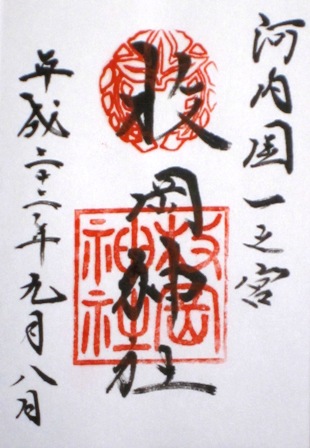 河内国一之宮
枚岡神社
平成二十二年九月八日
枚岡神社